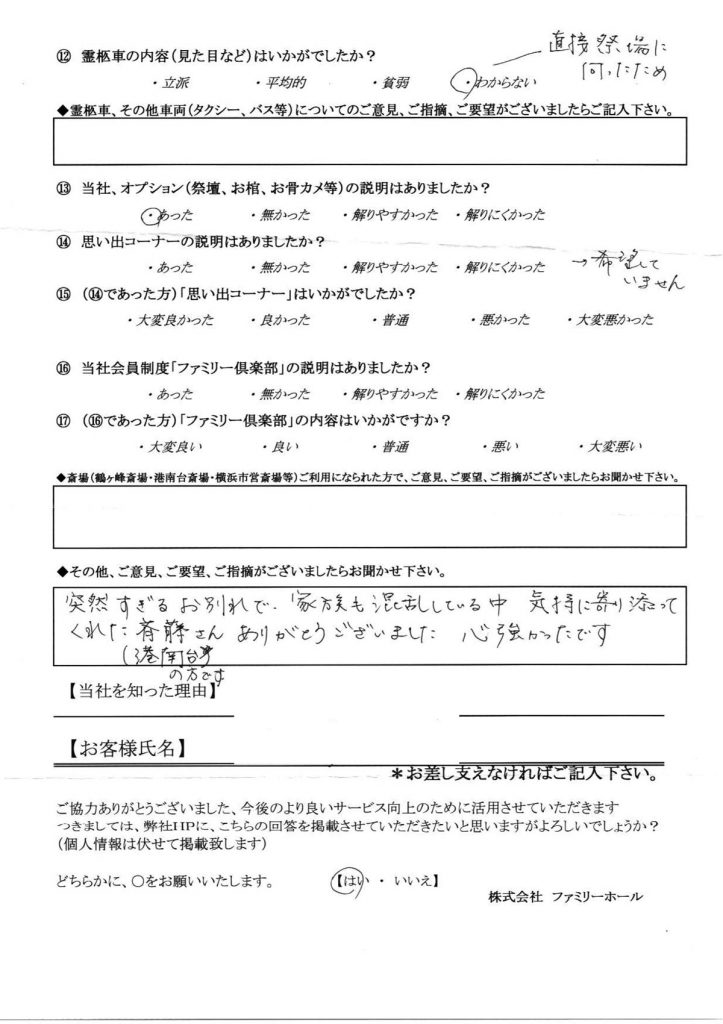 直接祭場に
伺ったため
⑫ 霊柩車の内容(見た目など)はいかがでしたか？
・立派 ・平均的 ・貧弱 ・わからない
◆霊柩車、その他車両(タクシー、バス等)についてのご意見、ご指摘、ご要望がございましたらご記入下さい。
⑬ 当社、オプション(祭壇、お棺、お骨カメ等)の説明はありましたか？
・あった ・無かった ・解りやすかった ・解りにくかった
⑭ 思い出コーナーの説明はありましたか？
・あった ・無かった ・解りやすかった ・解りにくかった
→希望して
いません
⑮ (⑭であった方)「思い出コーナー」はいかがでしたか？
・大変良かった ・良かった ・普通 ・悪かった ・大変悪かった
⑯ 当社会員制度「ファミリー倶楽部」の説明はありましたか？
・あった ・無かった ・解りやすかった ・解りにくかった
⑰ (⑯であった方)「ファミリー倶楽部」の内容はいかがですか？
・大変良い ・良い ・普通 ・悪い ・大変悪い
◆斎場(鶴ヶ峰斎場・港南台斎場・横浜市営斎場等)ご利用になられた方で、ご意見、ご要望、ご指摘がございましたらお聞かせ下さい。
◆その他、ご意見、ご要望、ご指摘がございましたらお聞かせ下さい。
突然すぎるお別れで、家族も混乱している中 気持に寄り添って
くれた斉藤さん ありがとうございました 心強かったです
(港南台
の方です
【当社を知った理由】
【お客様氏名】
＊お差し支えなければご記入下さい。
ご協力ありがとうございました、今後のより良いサービス向上のために活用させていただきます
つきましては、弊社HPに、こちらの回答を掲載させていただきたいと思いますがよろしいでしょうか？
(個人情報は伏せて掲載致します)
どちらかに、○をお願いいたします。 【はい ・ いいえ】
株式会社 ファミリーホール